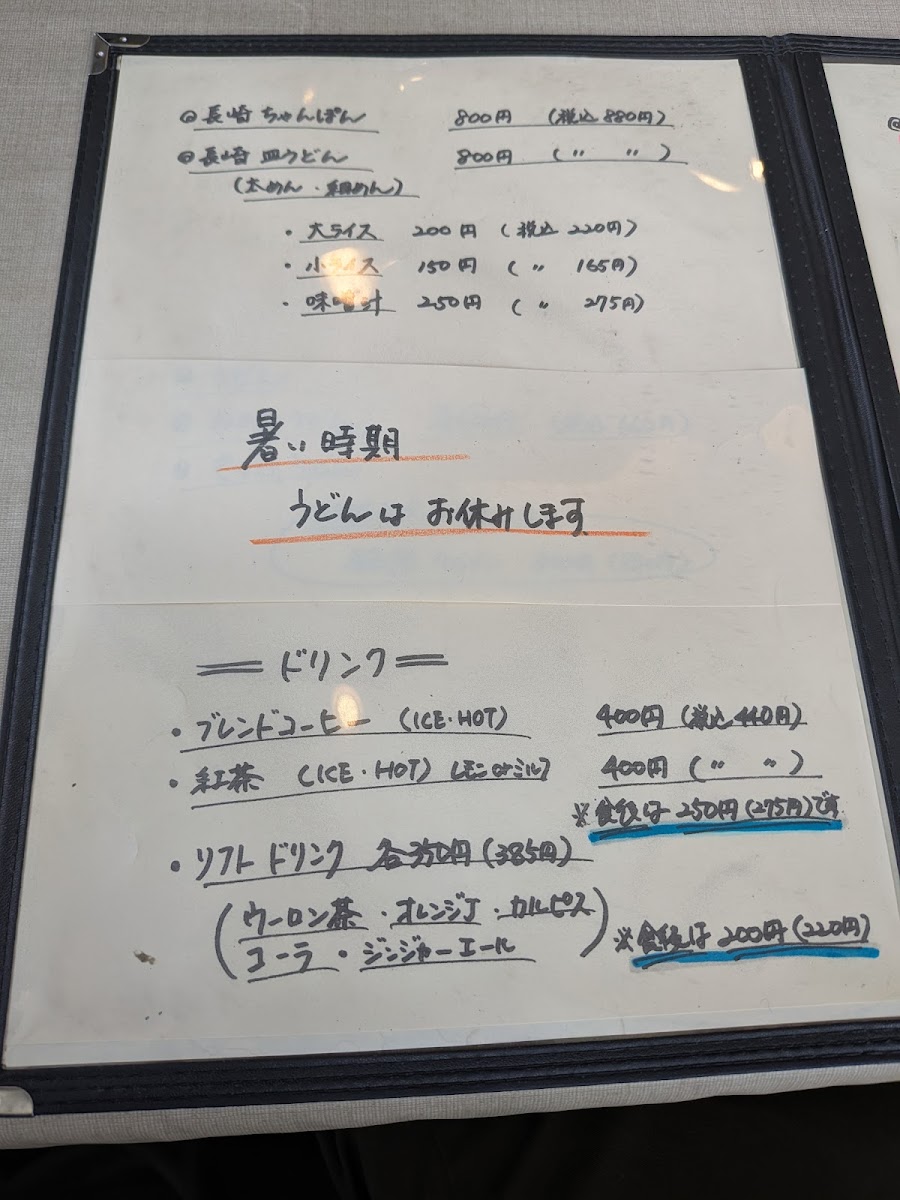 ◎長崎 ちゃんぽん 800円 (税込 880円)
◎長崎 皿うどん 800円 (〃 〃)
(太めん・細めん)
・大ライス 200円 (税込 220円)
・小ライス 150円 (〃 165円)
・味噌汁 250円 (〃 275円)
暑い時期
うどんは お休みします
== ドリンク ==
・ブレンドコーヒー (ICE・HOT) 400円 (税込 440円)
・紅茶 (ICE・HOT) レモンorミルク 400円 (〃 〃)
※食後は 250円(275円)です
・ソフト ドリンク 各350円(385円)
(ウーロン茶・オレンジJ・カルピス
コーラ・ジンジャーエール)
※食後は 200円(220円)